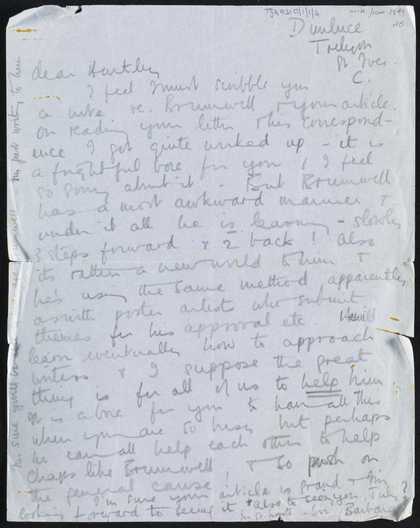 Dunluce
Trelyon
St Ives
C.
dear Hartley
I feel I must scribble you
a note re. Brumwell & your article.
On reading your letter & his correspond-
ence I got quite worked up – it is
a frightful bore for you & I feel
so sorry about it. But Brumwell
has a most awkward manner &
under it all he is learning – slowly
3 steps forward & 2 back! Also
its rather a new world to him &
he's using the same method apparently
as with poster artists who submit
themes for his approval etc He will
learn eventually how to approach
writers & I suppose the great
thing is for all of us to help him
It is a bore for you to have all this
when you are so busy but perhaps
we can all help each other to help
chaps like Brumwell & so push on
the general cause!
I'm sure your article is grand & Am
looking forward to seeing it & also to seeing you
love Barbara